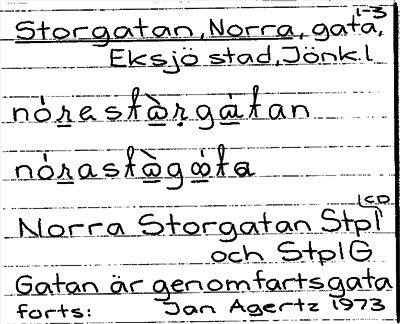 1-3
Storgatan, Norra, gata,
Eksjö stad, Jönk. l
LCD
Norra Storgatan Stpl
och StplG
Gatan är genomfartsgata
forts: Jan Agertz 1973